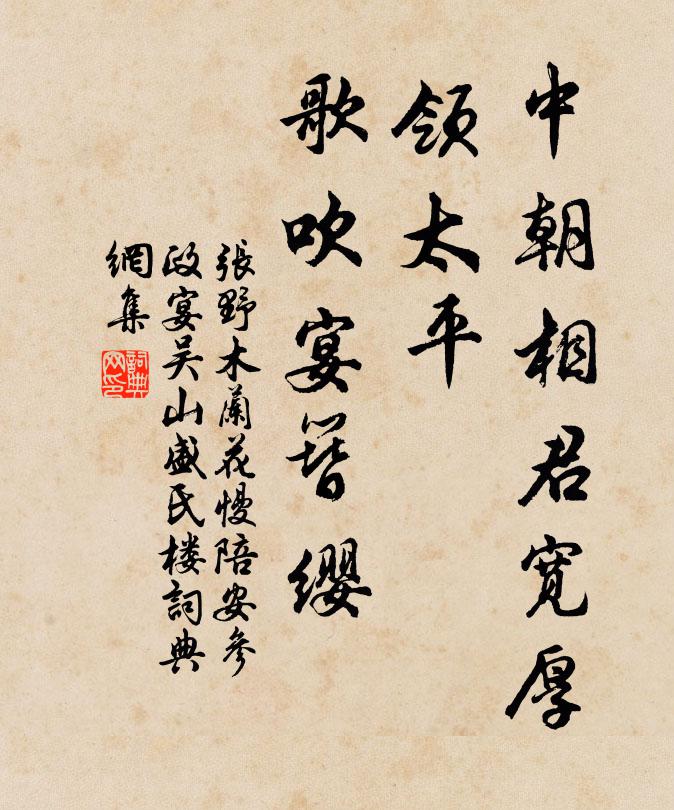 中朝相君寬厚
領太平
歌吹宴簪纓
張野木蘭花慢陪安參
政宴吴山盛氏楼詞典
網集
詞典
网印